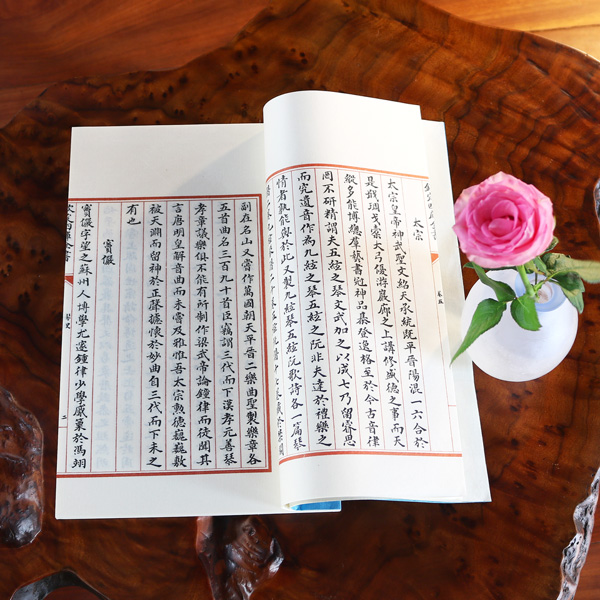 太宗
太宗皇帝神武聖文紹天承統既平晉陽混一六合於
是戢琱戈櫜大弓優游巖廊之上講修盛德之事而天
縱多能博總羣藝書冠神品棊登逸格至於今古音律
罔不研精謂夫五絃之琴文武加之以成七乃留睿思
而究遺音作為九絃之琴五絃之阮非夫達於禮樂之
情者孰能與於此又製九絃琴五絃阮歌詩各一篇琴
副在名山又嘗作萬國朝天平晉二樂曲聖製樂章各
五首曲名三百九十首臣竊謂三代而下漢孝元善琴
孝章議樂俱不能有所制作梁武帝論鍾律而徒聞其
言唐明皇解音曲而未嘗及雅惟吾太宗勲德巍巍敷
被天淵而留神於正庠攄懷於妙曲自三代而下未之
有也
竇儼
竇儼字望之蘇州人博學尤邃鍾律少學觱篥於馮翊
二